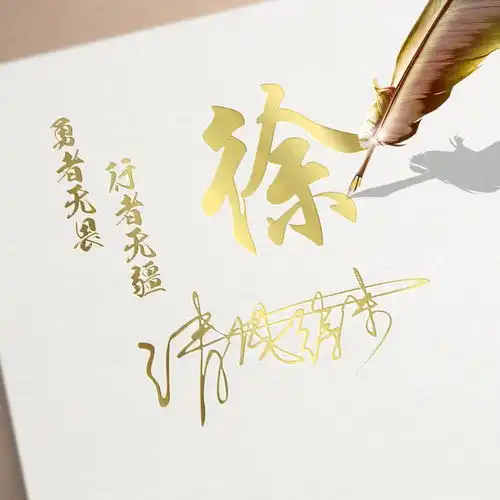 徐
行者无疆
勇者无畏